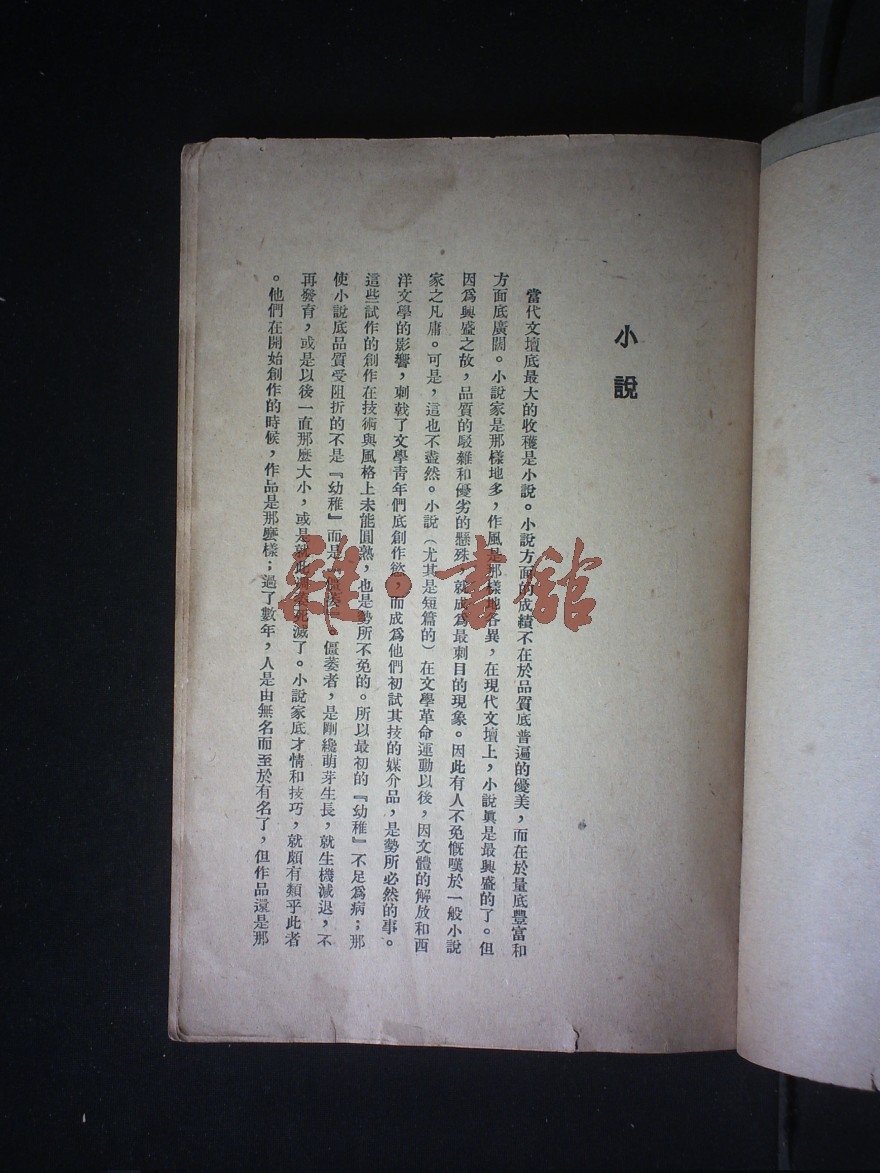 小說
當代文壇底最大的收穫是小說。小說方面的成績不在於品質底普遍的優美，而在於量底豐富和
方面底廣闊。小說家是那樣地多，作風是那樣地各異，在現代文壇上，小說眞是最興盛的了。但
因爲興盛之故，品質的駁雜和優劣的懸殊，就成爲最刺目的現象。因此有人不免慨嘆於一般小說
家之凡庸。可是，這也不盡然。小說（尤其是短篇的）在文學革命運動以後，因文體的解放和西
洋文學的影響，刺戟了文學靑年們底創作慾，而成爲他們初試其技的媒介品，是勢所必然的事。
這些試作的創作在技術與風格上未能圓熟，也是勢所不免的。所以最初的『幼稚』不足爲病；那
使小說底品質受阻折的不是『幼稚』而是『僵萎』。僵萎者，是剛纔萌芽生長，就生機減退，不
再發育，或是以後一直那麼大小，或是就此死滅了。小說家底才情和技巧，就頗有類乎此者
。他們在開始創作的時候，作品是那麼樣；過了數年，人是由無名而至於有名了，但作品還是那
雜·書館